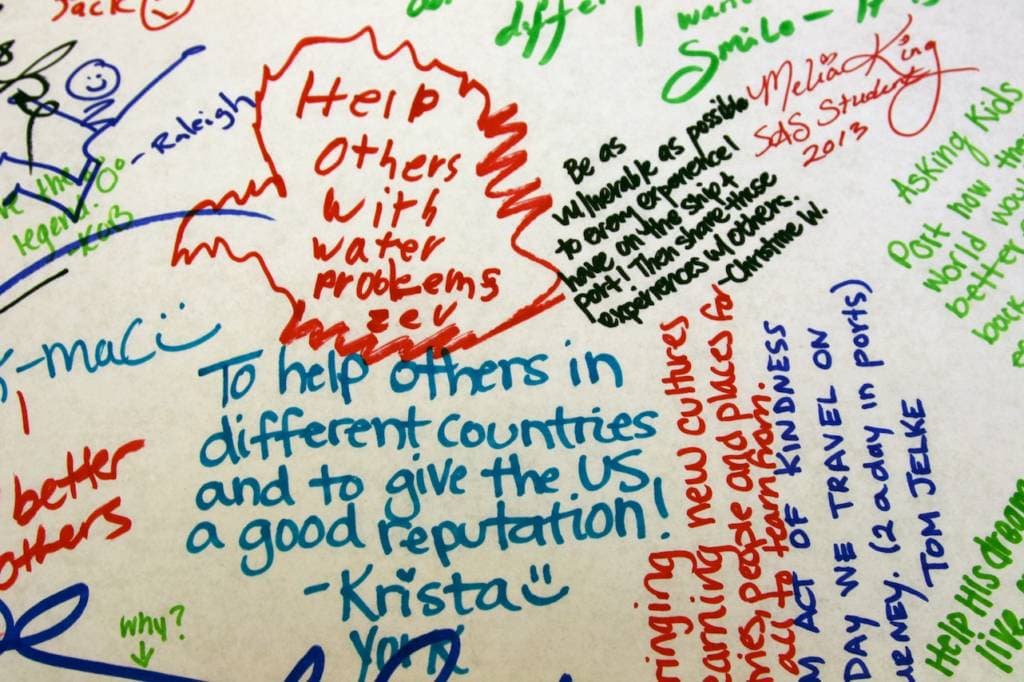 Jack
differ
I want
Smile - It is
Melia King
SAS Student
2013
- Raleigh
legend.
- KOB
Help
Others
With
water
problems
zev
Be as
vulnerable as possible
to every experience I
have on the ship +
port! Then share those
experiences w/ others.
- Christine W.
Asking Kids
Port how
World would
better
back
-maC
To help others in
different countries
and to give the US
a good reputation!
- Krista
York
I
better
others
why?
new cultures
people and places for
all to learn from.
ACT OF KINDNESS
DAY WE TRAVEL ON
(2 a day in ports)
TOM JELKE
Help His dream
live